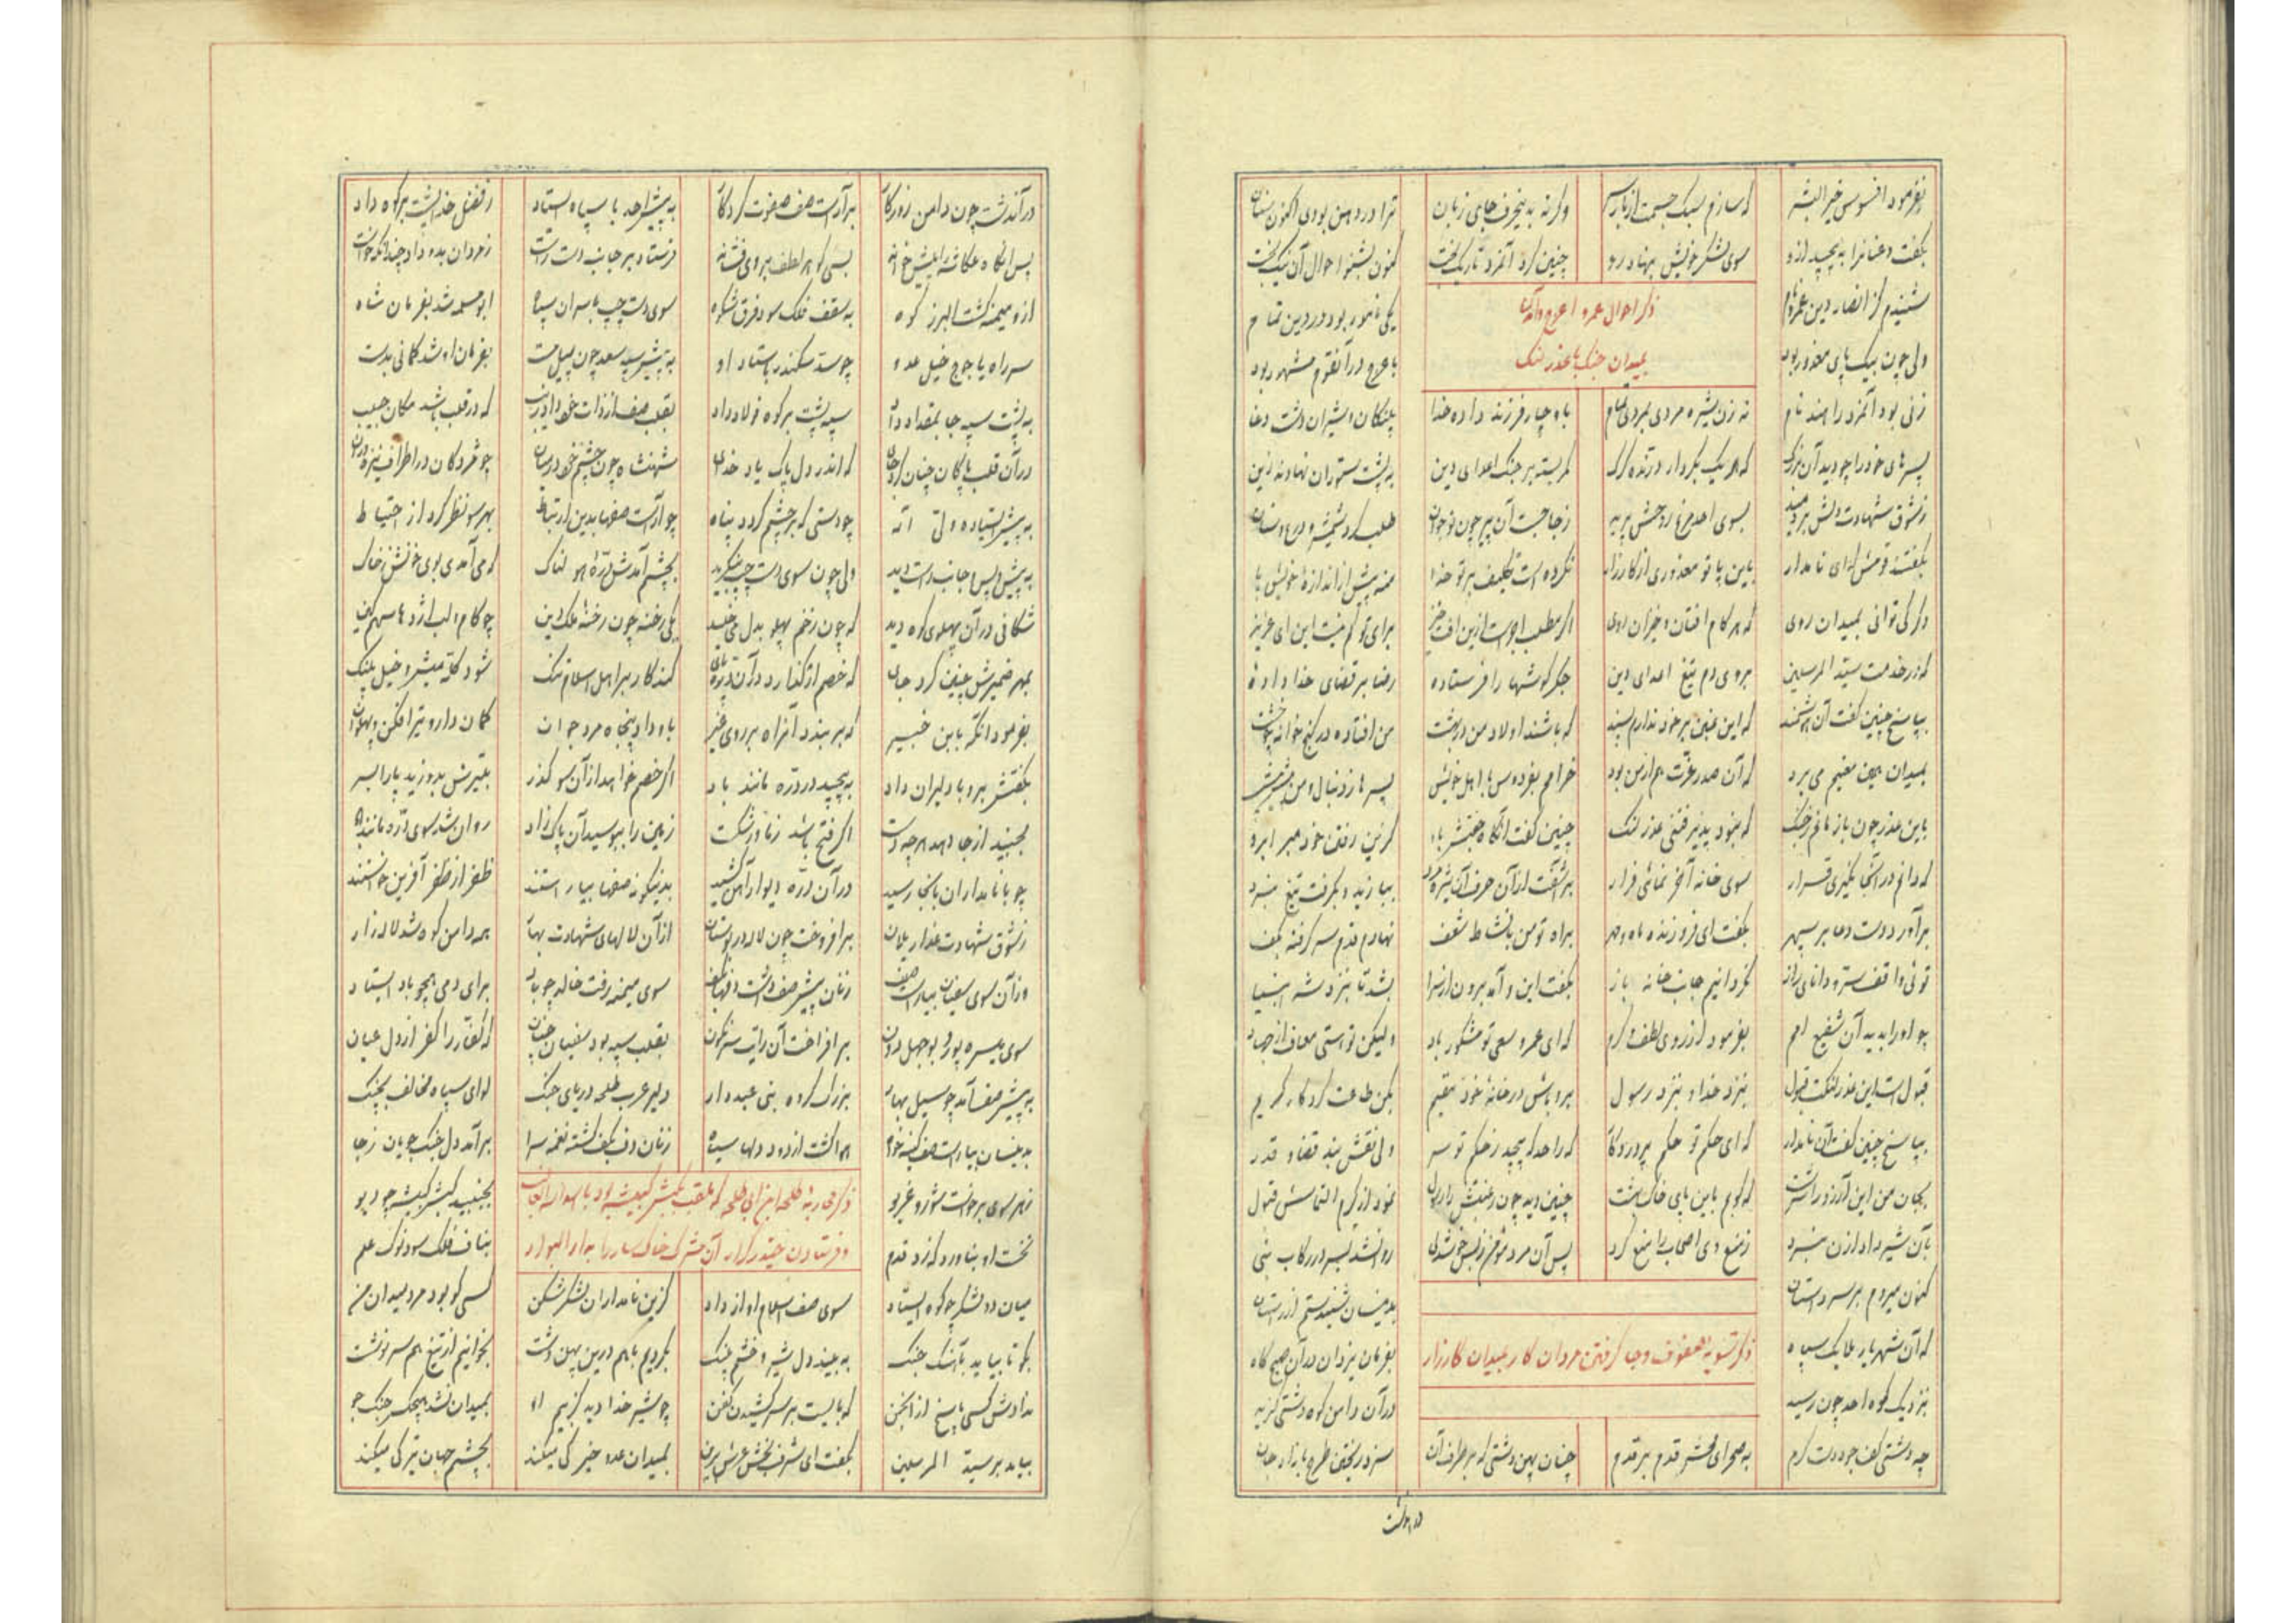 بفرمود افسوس خیر البشر که سازم سبک جسمت از بار سر وگرنه به نیخرف جای زبان ترا در دهن بودی اکنون سنان
بگفت و عنانرا به پیچید ازو سوی لشکر خویش بنهاد رو چنین کرد آنمرد تاریک بخت کنون بشنو احوال آن نیک بخت
ذکر احوال عمرو اعرج و آمدن
بمیدان جنگ با عذر لنگ
شنیدم کز انصار دین عمرو نام یکی نامور بود در دین تمام
ولی چون بیک پای معذور بود باعرج در آنقوم مشهور بود
زنی بود آنمرد را هند نام نه زن شیره مردی بمردی تمام باو چار فرزند داده خدا پلنگان و شیران دشت وغا
پسرهای خود را چو دید آن بزرگ که هر یک بکردار درنده گرگ کمر بسته بر جنگ اعدای دین به پشت ستوران نهادند زین
ز شوق شهادت دلش بردمید بسوی احد مرغ روحش پرید ز جا جست آن پیر چون نوجوان طلب کرد شمشیر و درع و سنان
بگفتند قومش که ای نامدار باین پا تو معذوری از کارزار نکرده است تکلیف بر تو خدا منه پیش از اندازه خویش پا
دگر کی توانی بمیدان روی که هر گام افتان و خیزان روی اگر مطلب اجر است ازین افت خیز برای تو کم نیست این ای عزیز
که در خدمت سید المرسلین بروی دم تیغ اعدای دین جگر گوشها را فرستاده رضا بر قضای خدا داده
بپاسخ چنین گفت آن هوشمند که این بمن بر خود ندارم پسند که باشند اولاد من در بهشت من افتاده در کنج خانه چو خشت
بمیدان همین مقیم می برد که آن صدر عزت هم از من بود خرامم بفردوس با اهل خویش پسرها ز دنبال و من پیش پیش
باین عذر چون باز مانم ز جنگ که نبود پذیرفتنی عذر لنگ چنین گفت آنگاه جفتش باو کزین رفتن خود مبر آبرو
که دانم در آنجا نگیری قرار سوی خانه آخر نمائی فرار برآشفت از آن حرف آن شیر مرد بیازید و بگرفت تیغ نبرد
برآورد دست دعا بر سپهر بگفت ای فروزنده ماه و مهر براه تو من با نشاط و شعف نهادم قدم سر گرفته بکف
توئی واقف ستر و دانای راز نگردانیم جانب خانه باز بگفت این و آمد برون از سرا بشد تا بنزد شه انبیا
چو او را بدید آن شفیع امم بفرمود از روی لطف و کرم که ای عمرو سعی تو مشکور باد ولیکن تو استی معاف از جهاد
قبول است این عذر لنگت قبول بنزد خدا و بنزد رسول برو باش در خانه خود مقیم بکن طاعت کردگار کریم
بپاسخ چنین گفت آن نامدار که ای حکم تو حکم پروردگار که را حد که پیچد ز حکم تو سر ولی نقش بند قضا و قدر
بجان من این آرزو را سرشت که کوبم باین پای خاک بهشت چنین دید چون رغبتش را رسول نمود از کرم التماسش قبول
بآن شیر داد اذن نبرد ز منع وی اصحاب را منع کرد پس آن مرد مؤمن ز بس خوشدلی روان شد پسر در رکاب نبی
کنون میروم بر سر داستان بدینسان شنیدستم از راستان
ذکر تسویه صفوف و جا گرفتن مردان کار بمیدان کارزار
که آن شهریار ملایک سپاه بفرمان یزدان در آن صبح گاه
بنزدیک کوه احد چون رسید در آن دامن کوه دشتی گزید
چه دشتی کف جود دست کرم به صحرای محشر قدم بر قدم چنان پهن دشتی که بر طرف آن سزد ریختن طرح بازار جان
در آندشت چون دامن روزگار برآراست صف صفوت کردگار به پیش احد با سپاه ایستاد ز فضل خدا پشت بر کوه داد
پس آنگاه عکاشه را پیش خواند بسی گوهر لطف بر وی فشاند فرستاد بر جانب دست راست ز مردان بدو داد چندانکه خواست
ازو میمنه گشت البرز کوه به سقف فلک سود فرق شکوه سوی دست چپ با سران سپاه ابو سلمه شد بفرمان شاه
سر راه یاجوج خیل عدو چو سد سکندر باستاد او به پیش سپه سعد چون پیل مست بفرمان او شد کمانی بدست
به پشت سپه جا بمقداد داد سپه پشت بر کوه فولاد داد که در قلب باشد مکان حبیب
در آن قلب پاکان چنان کرد جای که اندر دل پاک یاد خدای شهنشاه چون چشم خود در میان چو مژگان در اطراف نیزه وران
به پیش ایستاده چودستی که بر چشم گردد پناه چو آراست صفها بدین ارتباط بهر سو نظر کرد از احتیاط
به پیش و پس و جانب راست دید ولی چون سوی دست چپ بنگرید بچشم آمدش دره هولناک که می آمدی بوی خونش ز خاک
شکافی در آن پهلوی کوه دید که چون زخم پهلو بدل می خلید یکی رخنه چون رخنه ملک دین چو کام اژدها سهمگین
بمهر ضمیرش چنین کرد جای که خصم ار گذارد در آن دره پای کند کار بر اهل اسلام تنگ
بفرمود آنگه بابن جبیر که بر بندد آنراه بر روی غیر باو داد پنجاه مرد جوان کمان دار و تیر افکن و پهلوان
بگفتش برو با دلیران راد به پیچید در دره مانند باد اگر خصم خواهد از آن سو گذر بتیرش بدوزید پا را بسر
بجنبید از جا دهد هر چه دست اگر فتح باشد ز ما ور شکست زمین را ببوسید آن پاک زاد روان شد سوی دره مانند باد
چو با نامداران بآنجا رسید در آن دره دیوار آهن کشید بدینگونه صفها بیاراستند ظفر از ظفر آفرین خواستند
ز شوق شهادت عذار یلان برافروخت چون لاله در بوستان از آن لالهای شهادت بهار همه دامن کوه شد لاله زار
وز آن سوی سفیان بیاراست صف زنان پیش صف داشت دفها بکف سوی میمنه رفت خالد چو باد برای دمی همچو باد ایستاد
سوی میسره پور بوجهل دون برافراخت آن رایت سرنگون بقلب سپه بود سفیان چنان که کفار را کفر از دل عیان
به پیش صف آمد چو سیل بهار بزرگ گروه بنی عبد دار دلیر عرب طلحه دریای جنگ لوای سپاه مخالف بچنگ
بدینسان بیاراست صف کینه خواه هوا گشت از دود دلها سیاه زنان دف بکف گشته نغمه سرا برآمد دل جنگ جویان ز جا
ذکر محاربه طلحه ابن ابی طلحه که ملقب بکبش کتیبه بود با اسد الله الغالب
و فرستادن حیدر کرار آن مشرک خاکسار را به دار البوار
ز هر سوی برخاست شور و غریو بجنبید کبش کتیبه چو دیو
نخست او بناورد که زد قدم بناف فلک سود نوک علم
میان دو لشکر چو کوه ایستاد سوی صف اسلام آواز داد گزین نامداران لشکر شکن کسی کو بود مرد میدان من
بگو تا بیاید بآهنگ جنگ به بیند دل شیر و خشم پلنگ بگردیم باهم درین پهن دشت بخوانیم از تیغ هم سرنوشت
ندادش کسی پاسخ از انجمن که بایست بر سر کشیدن کفن چو شیر خدا دید کز بیم او بمیدان نشد هیچکس جنگ جو
بیامد بر سید المرسلین بگفت ای شرف بخش عرش برین بمیدان عدو خیرگی میکند بچشم جهان تیرگی میکند